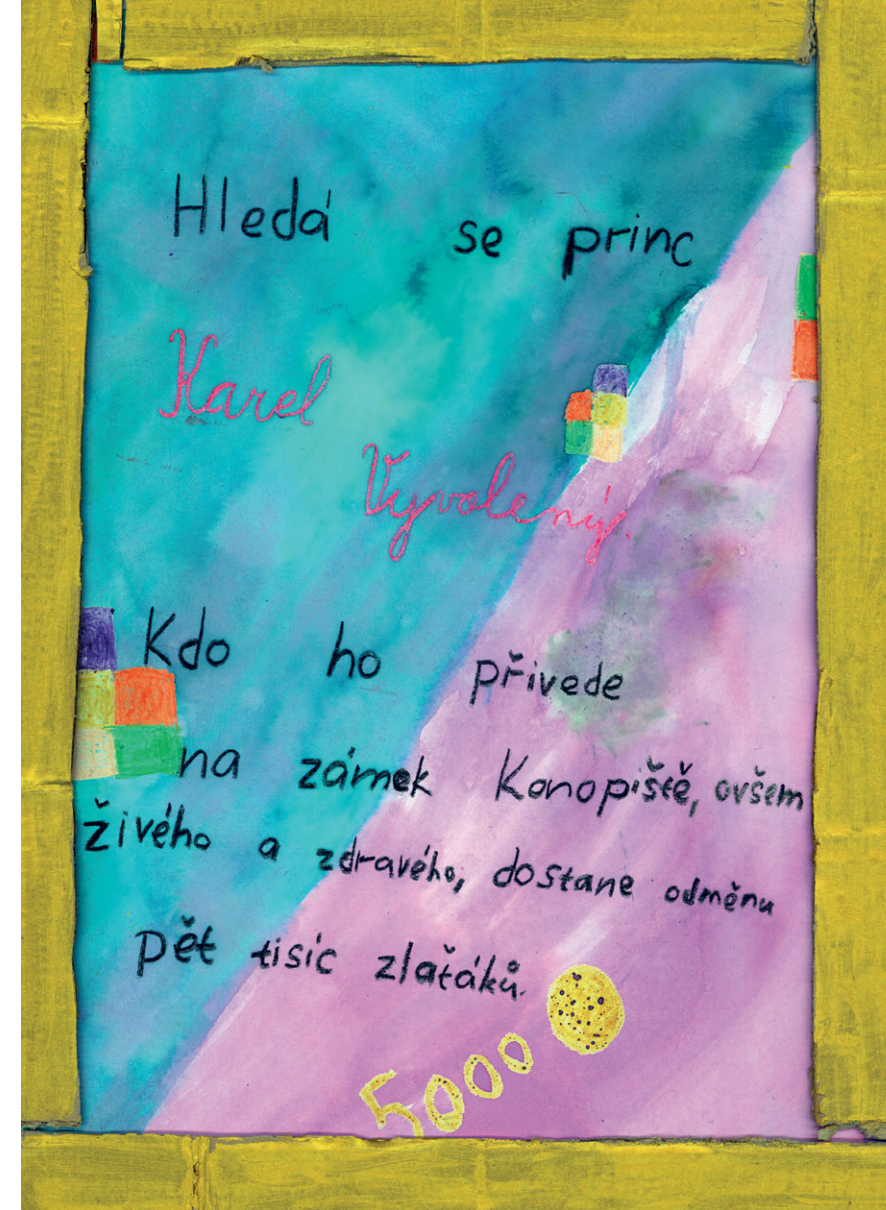 Hledá se princ
Karel
Vyvolený.
Kdo ho přivede
na zámek Konopiště, ovšem
živého a zdravého, dostane odměnu
pět tisíc zlaťáků.
5000